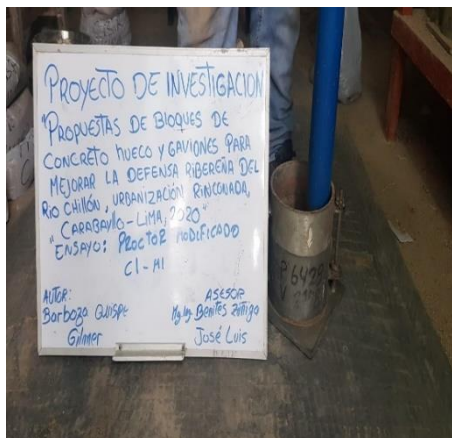 PROYECTO DE INVESTIGACION
"PROPUESTAS DE BLOQUES DE
CONCRETO HUECO Y GAVIONES PARA
MEJORAR LA DEFENSA RIBEREÑA DEL
RIO CHILLÓN, URBANIZACIÓN RINCONADA,
CARABAYLLO-LIMA, 2020"
"ENSAYO: PROCTOR MODIFICADO
C1-M1
AUTOR:
Barboza Quispe
Gilmer
ASESOR
Mg.Ing. Benites Zúñiga
José Luis
6428